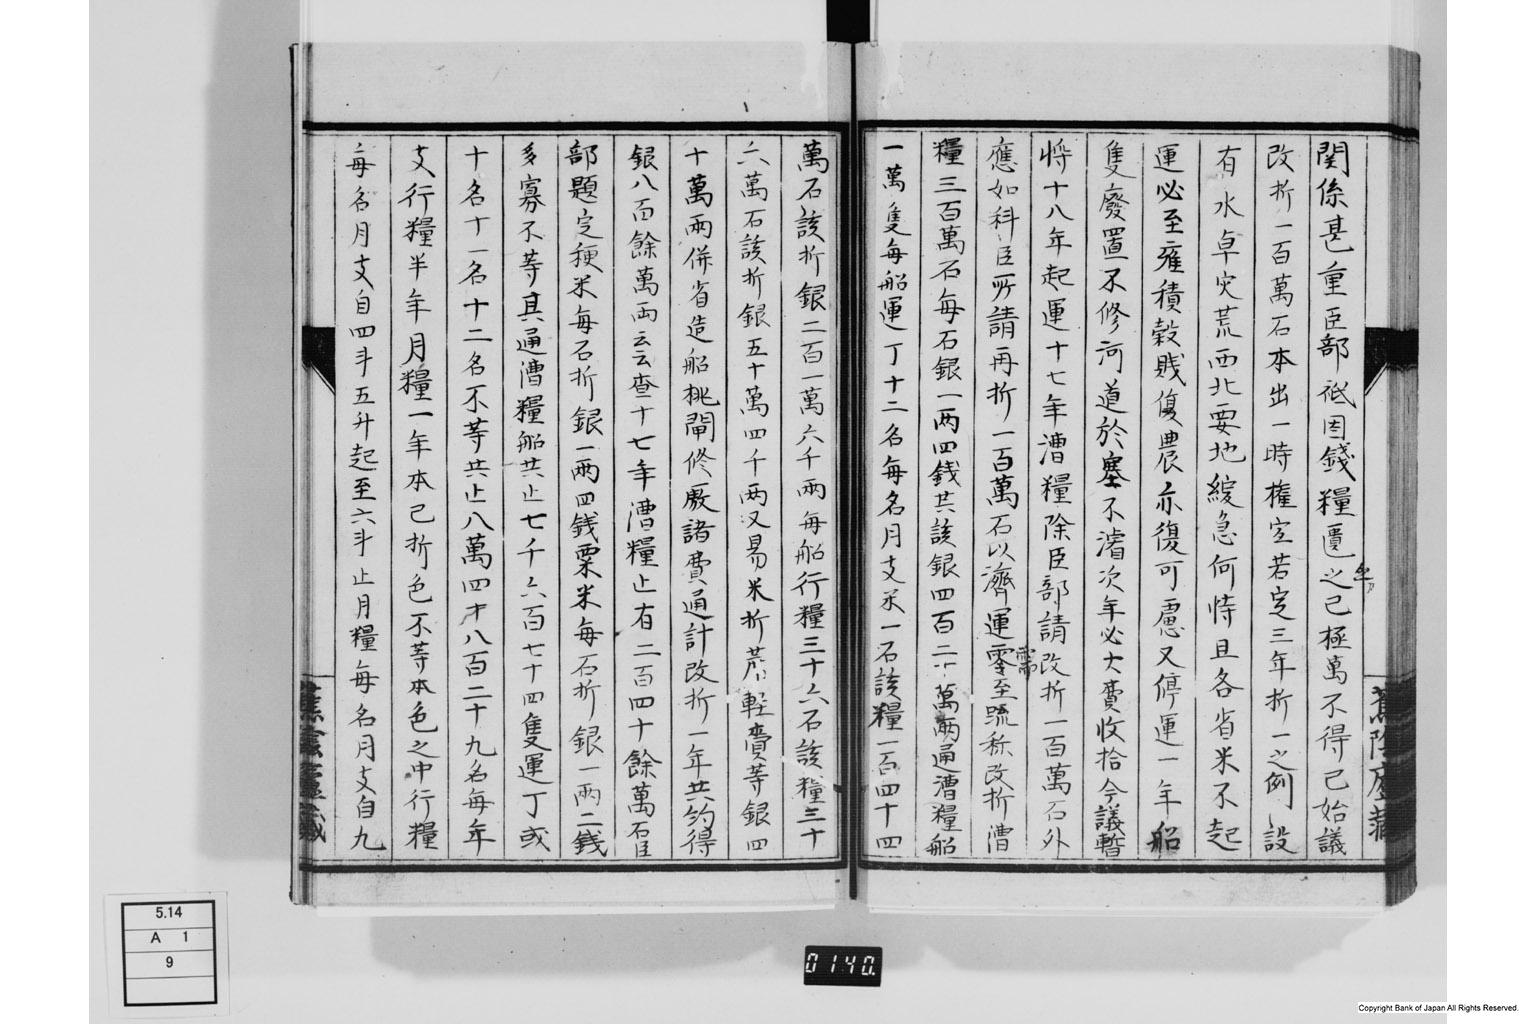 関係甚重臣部祗因錢糧匱乏已極萬不得已始議
改折一百萬石本出一時權宜若定三年折一之例設
有水旱灾荒西北要地緩急何恃且各省米不起
運必至雍積穀賤傷農亦復可慮又停運一年船
隻廢置不修河道於塞不濬次年必大費收拾今議暫
將十八年起運十七年漕糧除臣部請改折一百萬石外
應如科臣所請再折一百萬石以濟運零至疏称改折漕
需
糧三百萬石每石銀一两四錢共該銀四百二十萬两通漕糧船
一萬隻每船運丁十二名每名月支米一石該糧一百四十四
萬石該折銀二百一萬六千兩每船行糧三十六石該糧三十
六萬石該折銀五十萬四千两又易米折蓆輕賫等銀四
十萬兩併省造船挑閘修廠諸費通計改折一年共約得
銀八百餘萬両云云查十七年漕糧止有二百四十餘萬石臣
部題定稉米每石折銀一兩四錢粟米每石折銀一兩二錢
多寡不等其通漕糧船共止七千六百七十四隻運丁或
十名十一名十二名不等共止八萬四千八百二十九名每年
支行糧半年月糧一年本色折色不等本色之中行糧
每名月支自四斗五升起至六斗止月糧每名月支自九
5.14
A 1
9
0140.
Copyright Bank of Japan All Rights Reserved.